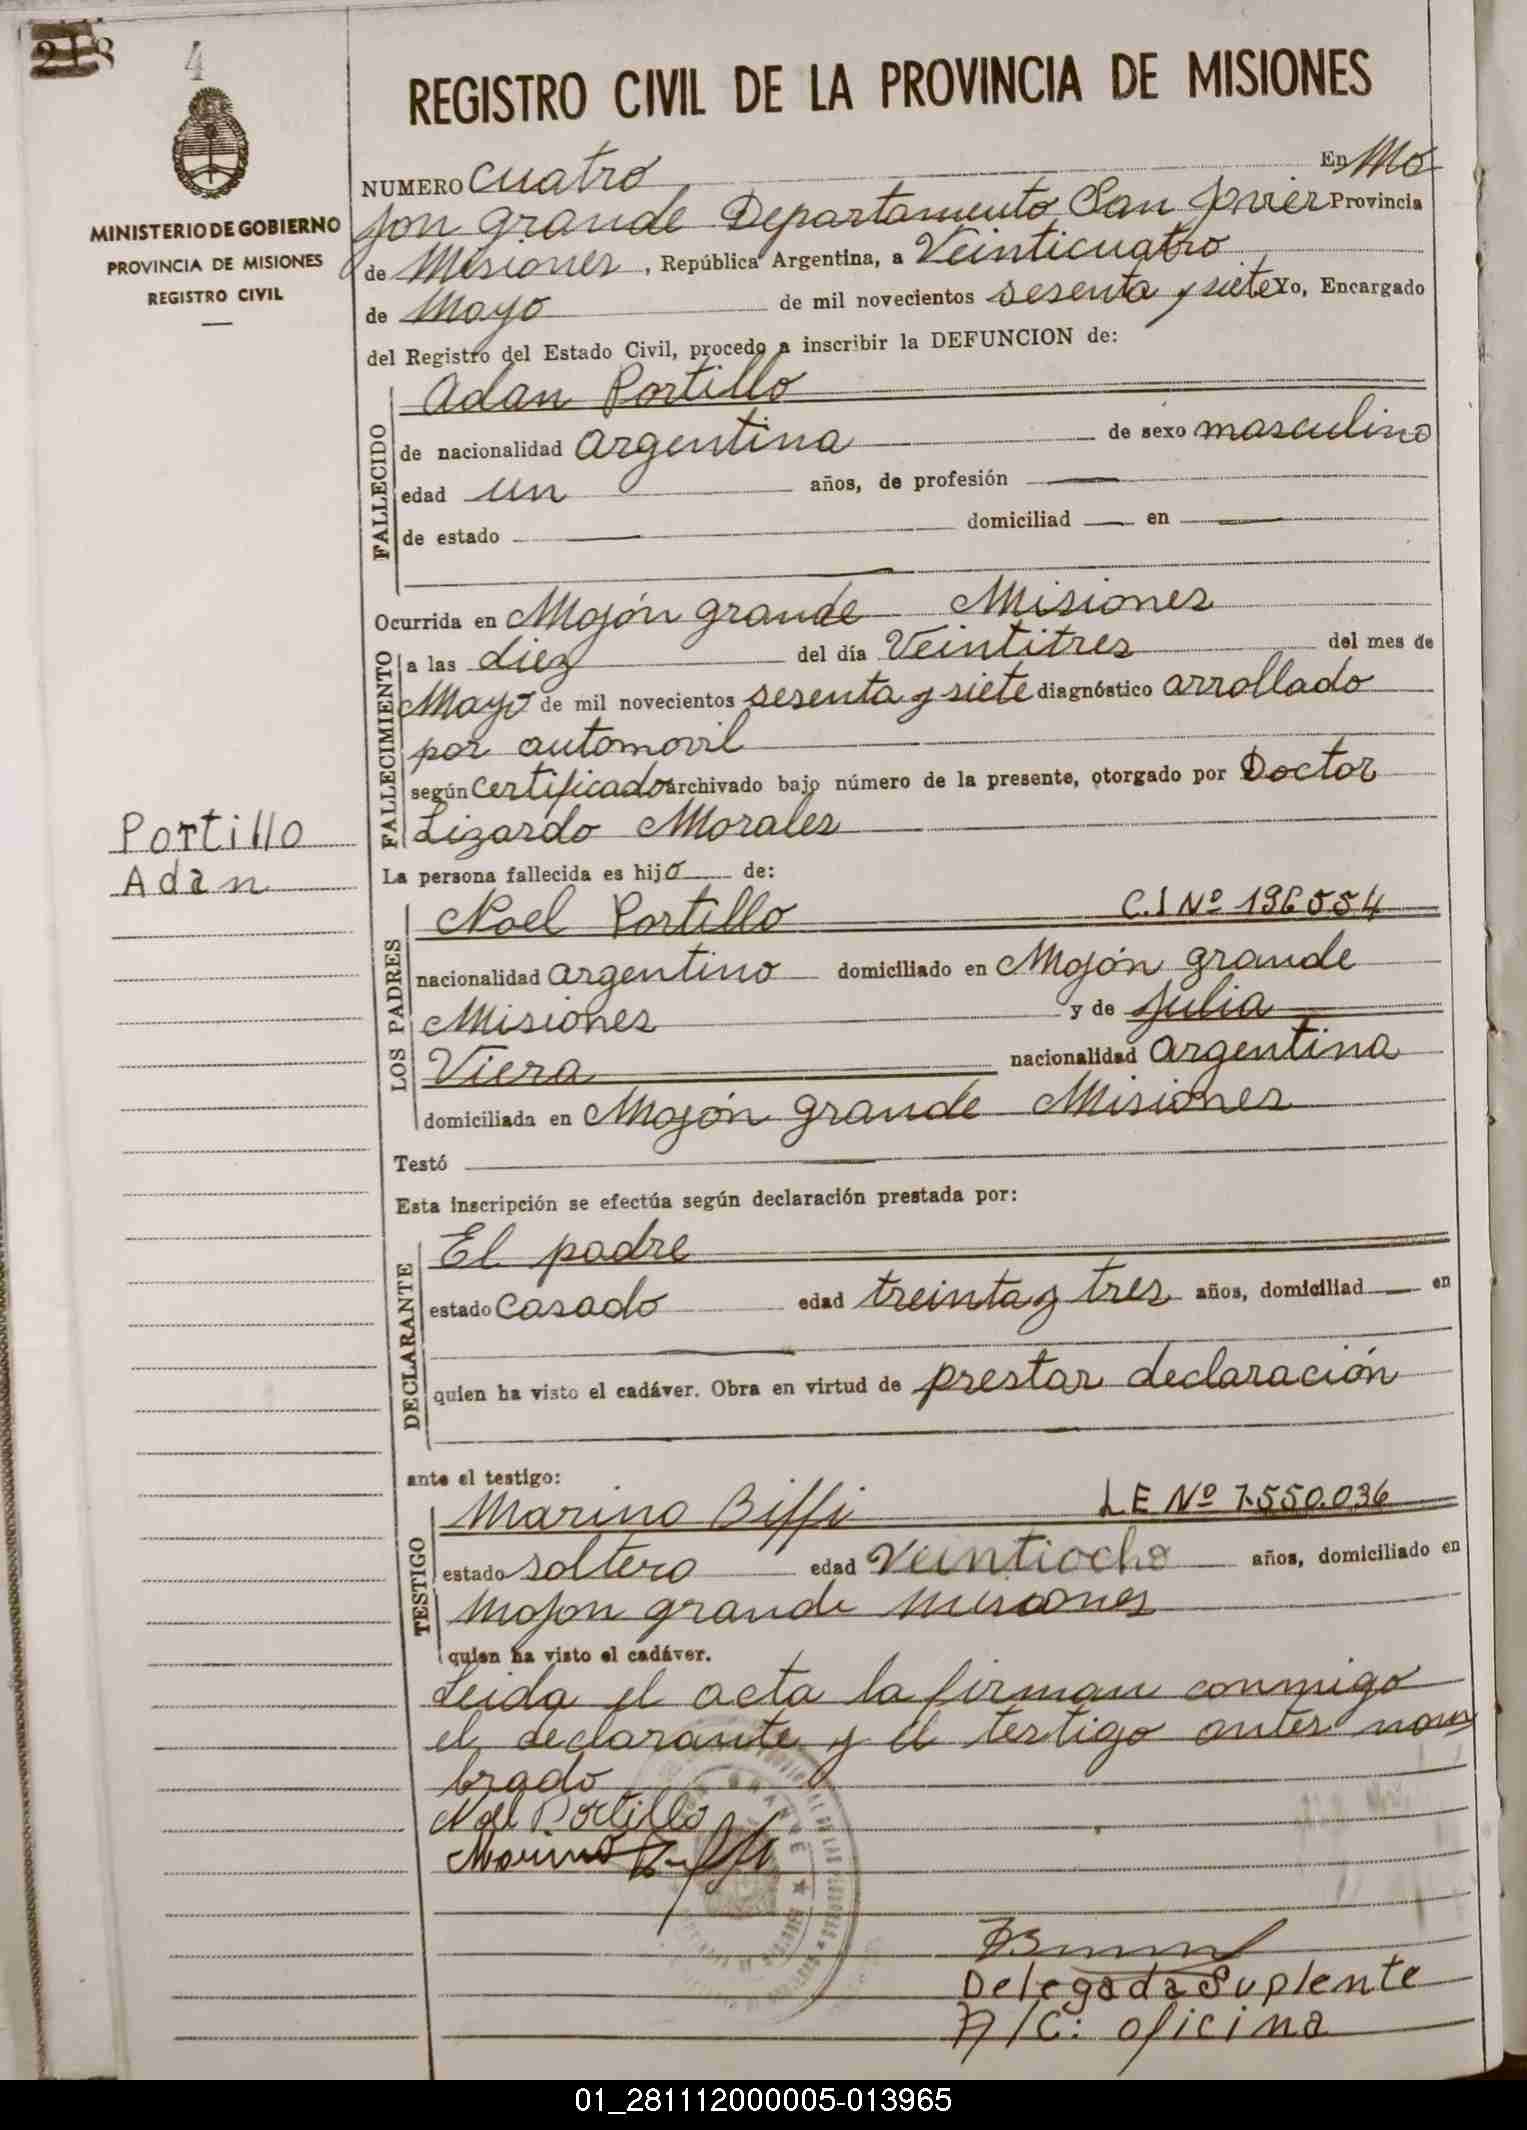 218
4
MINISTERIO DE GOBIERNO
PROVINCIA DE MISIONES
REGISTRO CIVIL
REGISTRO CIVIL DE LA PROVINCIA DE MISIONES
NUMERO cuatro En Mo
jon grande Departamento San Javier Provincia
de Misiones, República Argentina, a Veinticuatro
de Mayo de mil novecientos sesenta y siete Yo, Encargado
del Registro del Estado Civil, procedo a inscribir la DEFUNCION de:
FALLECIDO
Adan Portillo
de nacionalidad argentina de sexo masculino
edad un años, de profesión
de estado domiciliad en
Ocurrida en Mojón grande Misiones
FALLECIMIENTO
a las diez del día Veintitres del mes de
Mayo de mil novecientos sesenta y siete diagnóstico arrollado
por automovil
según certificado archivado bajo número de la presente, otorgado por Doctor
Lizardo Morales
Portillo
Adan
La persona fallecida es hijo de:
LOS PADRES
Noel Portillo C.I Nº 196554
nacionalidad argentino domiciliado en Mojón grande
Misiones y de Julia
Viera nacionalidad argentina
domiciliada en Mojón grande Misiones
Testó
Esta inscripción se efectúa según declaración prestada por:
DECLARANTE
El padre
estado casado edad treinta y tres años, domiciliad en
quien ha visto el cadáver. Obra en virtud de prestar declaración
ante el testigo:
TESTIGO
Marino Biffi L E Nº 7.550.036
estado soltero edad Veintiocho años, domiciliado en
Mojon grande Misiones
quien ha visto el cadáver.
Leida el acta la firman conmigo
el declarante y el testigo antes nom
brado
Noel Portillo
Marino Biffi
Delegada Suplente
A/C: oficina
01_281112000005-013965